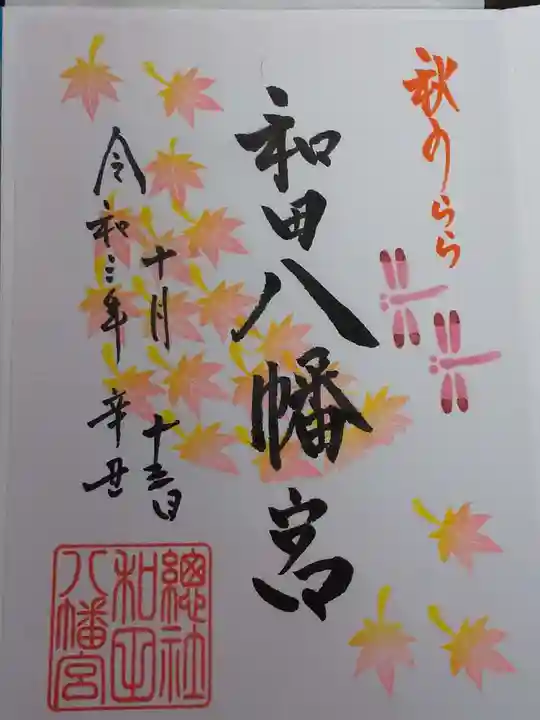 秋のうらら
和田八幡宮
十月十三日
令和三年辛丑
總社
和田
八幡宮